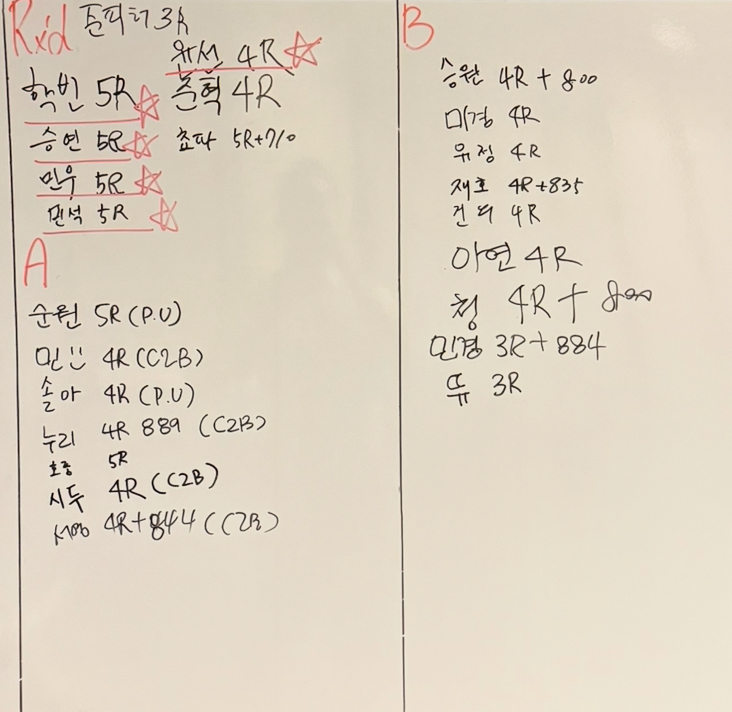 Rx'd 존피터 3R
완선 4R
학빈 5R
준혁 4R
승연 5R
쵸파 5R+710
민우 5R
민석 5R
A
순원 5R (P.U)
민 4R (C2B)
솔아 4R (P.U)
누리 4R 889 (C2B)
호중 5R
시두 4R (C2B)
4R+844 (C2B)
B
승완 4R + 800
미경 4R
유정 4R
재호 4R+835
건 4R
아연 4R
청 4R + 800
민경 3R+884
뜌 3R